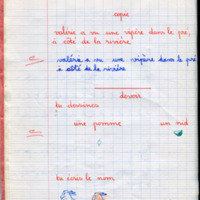 copie
valérie a vu une vipère dans le pré,
à côté de la rivière
valérie a vu une vipère dans le pré
à côté de la rivière
devoir
tu dessines
une pomme un nid
tu écris le nom